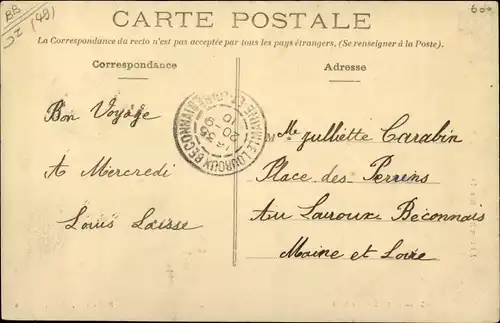 BB
(48)
CARTE POSTALE
La Correspondance du recto n'est pas acceptée par tous les pays étrangers, (Se renseigner à la Poste).
Correspondance
Adresse
Bon Voyage
A Mercredi
Louis Laisse
LE LOUROUX BECONNAIS
MAINE ET LOIRE
Mlle Julliette Carabin
Place des Perrins
Au Lauroux Béconnais
Maine et Loire